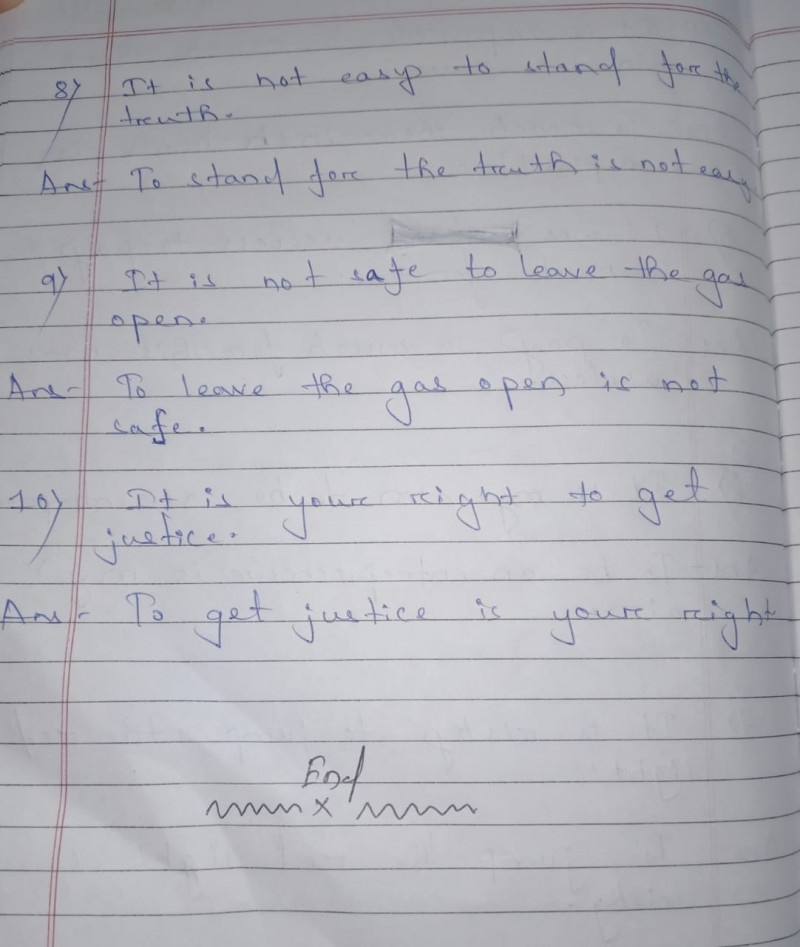 8) It is not easy to stand for the
truth.
Ans- To stand for the truth is not easy
9) It is not safe to leave the gas
open.
Ans- To leave the gas open is not
safe.
10) It is your right to get
justice.
Ans- To get justice is your right
End
x